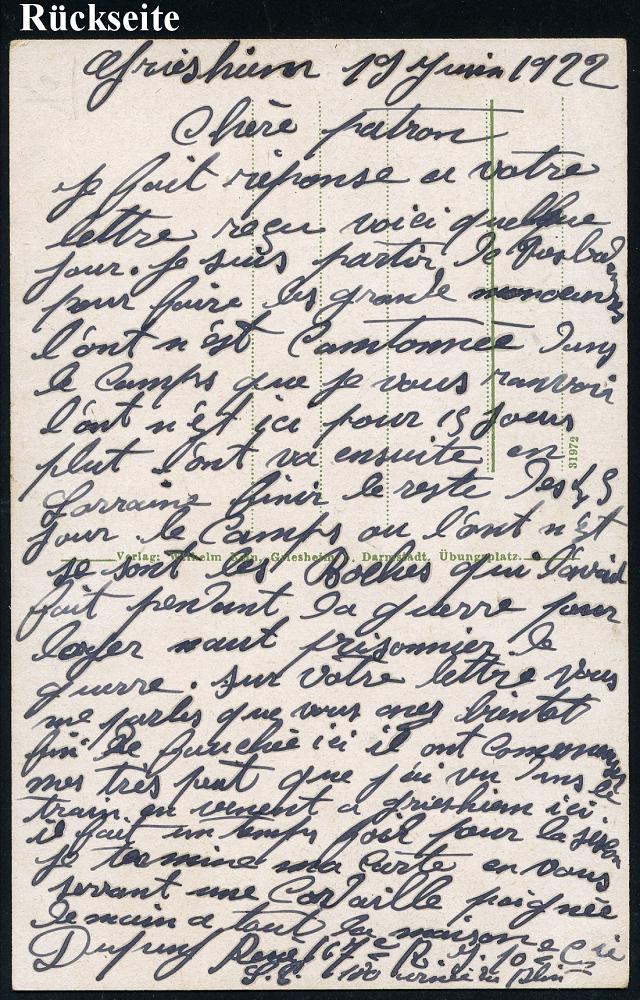 Rückseite
Griesheim 19 Juin 1922
Chère patron
je fait réponse a votre
lettre reçu voici quelque
jour. je suis partir de
pour faire les grande
l'ont n'est Camtonnée dans
le Camps que je vous ranvoir
l'ont n'est ici pour 15 jours
plut l'ont va ensuite en
Lorraine finir le reste des 45
jour. le Camps ou l'ont n'est
se sont les Boches qui l'avait
fait pendant la guerre pour
loger naut prisonnier de
guerre. sur votre lettre vous
me parles que vous avez bientot
fini de fauchée ici il ont
mes très peut que j'ai vu dans le
train en venent a grieshiem ici.
il fait un temps foid pour la seson
je termine ma Carte en vous
serrant une Cordialle poignée
de main a tout la maison
Dupuy René 167e R. I. 10e Cie
S.P. 100
Verlag: Wilhelm Griesheim b. Darmstadt, Übungsplatz.
31972